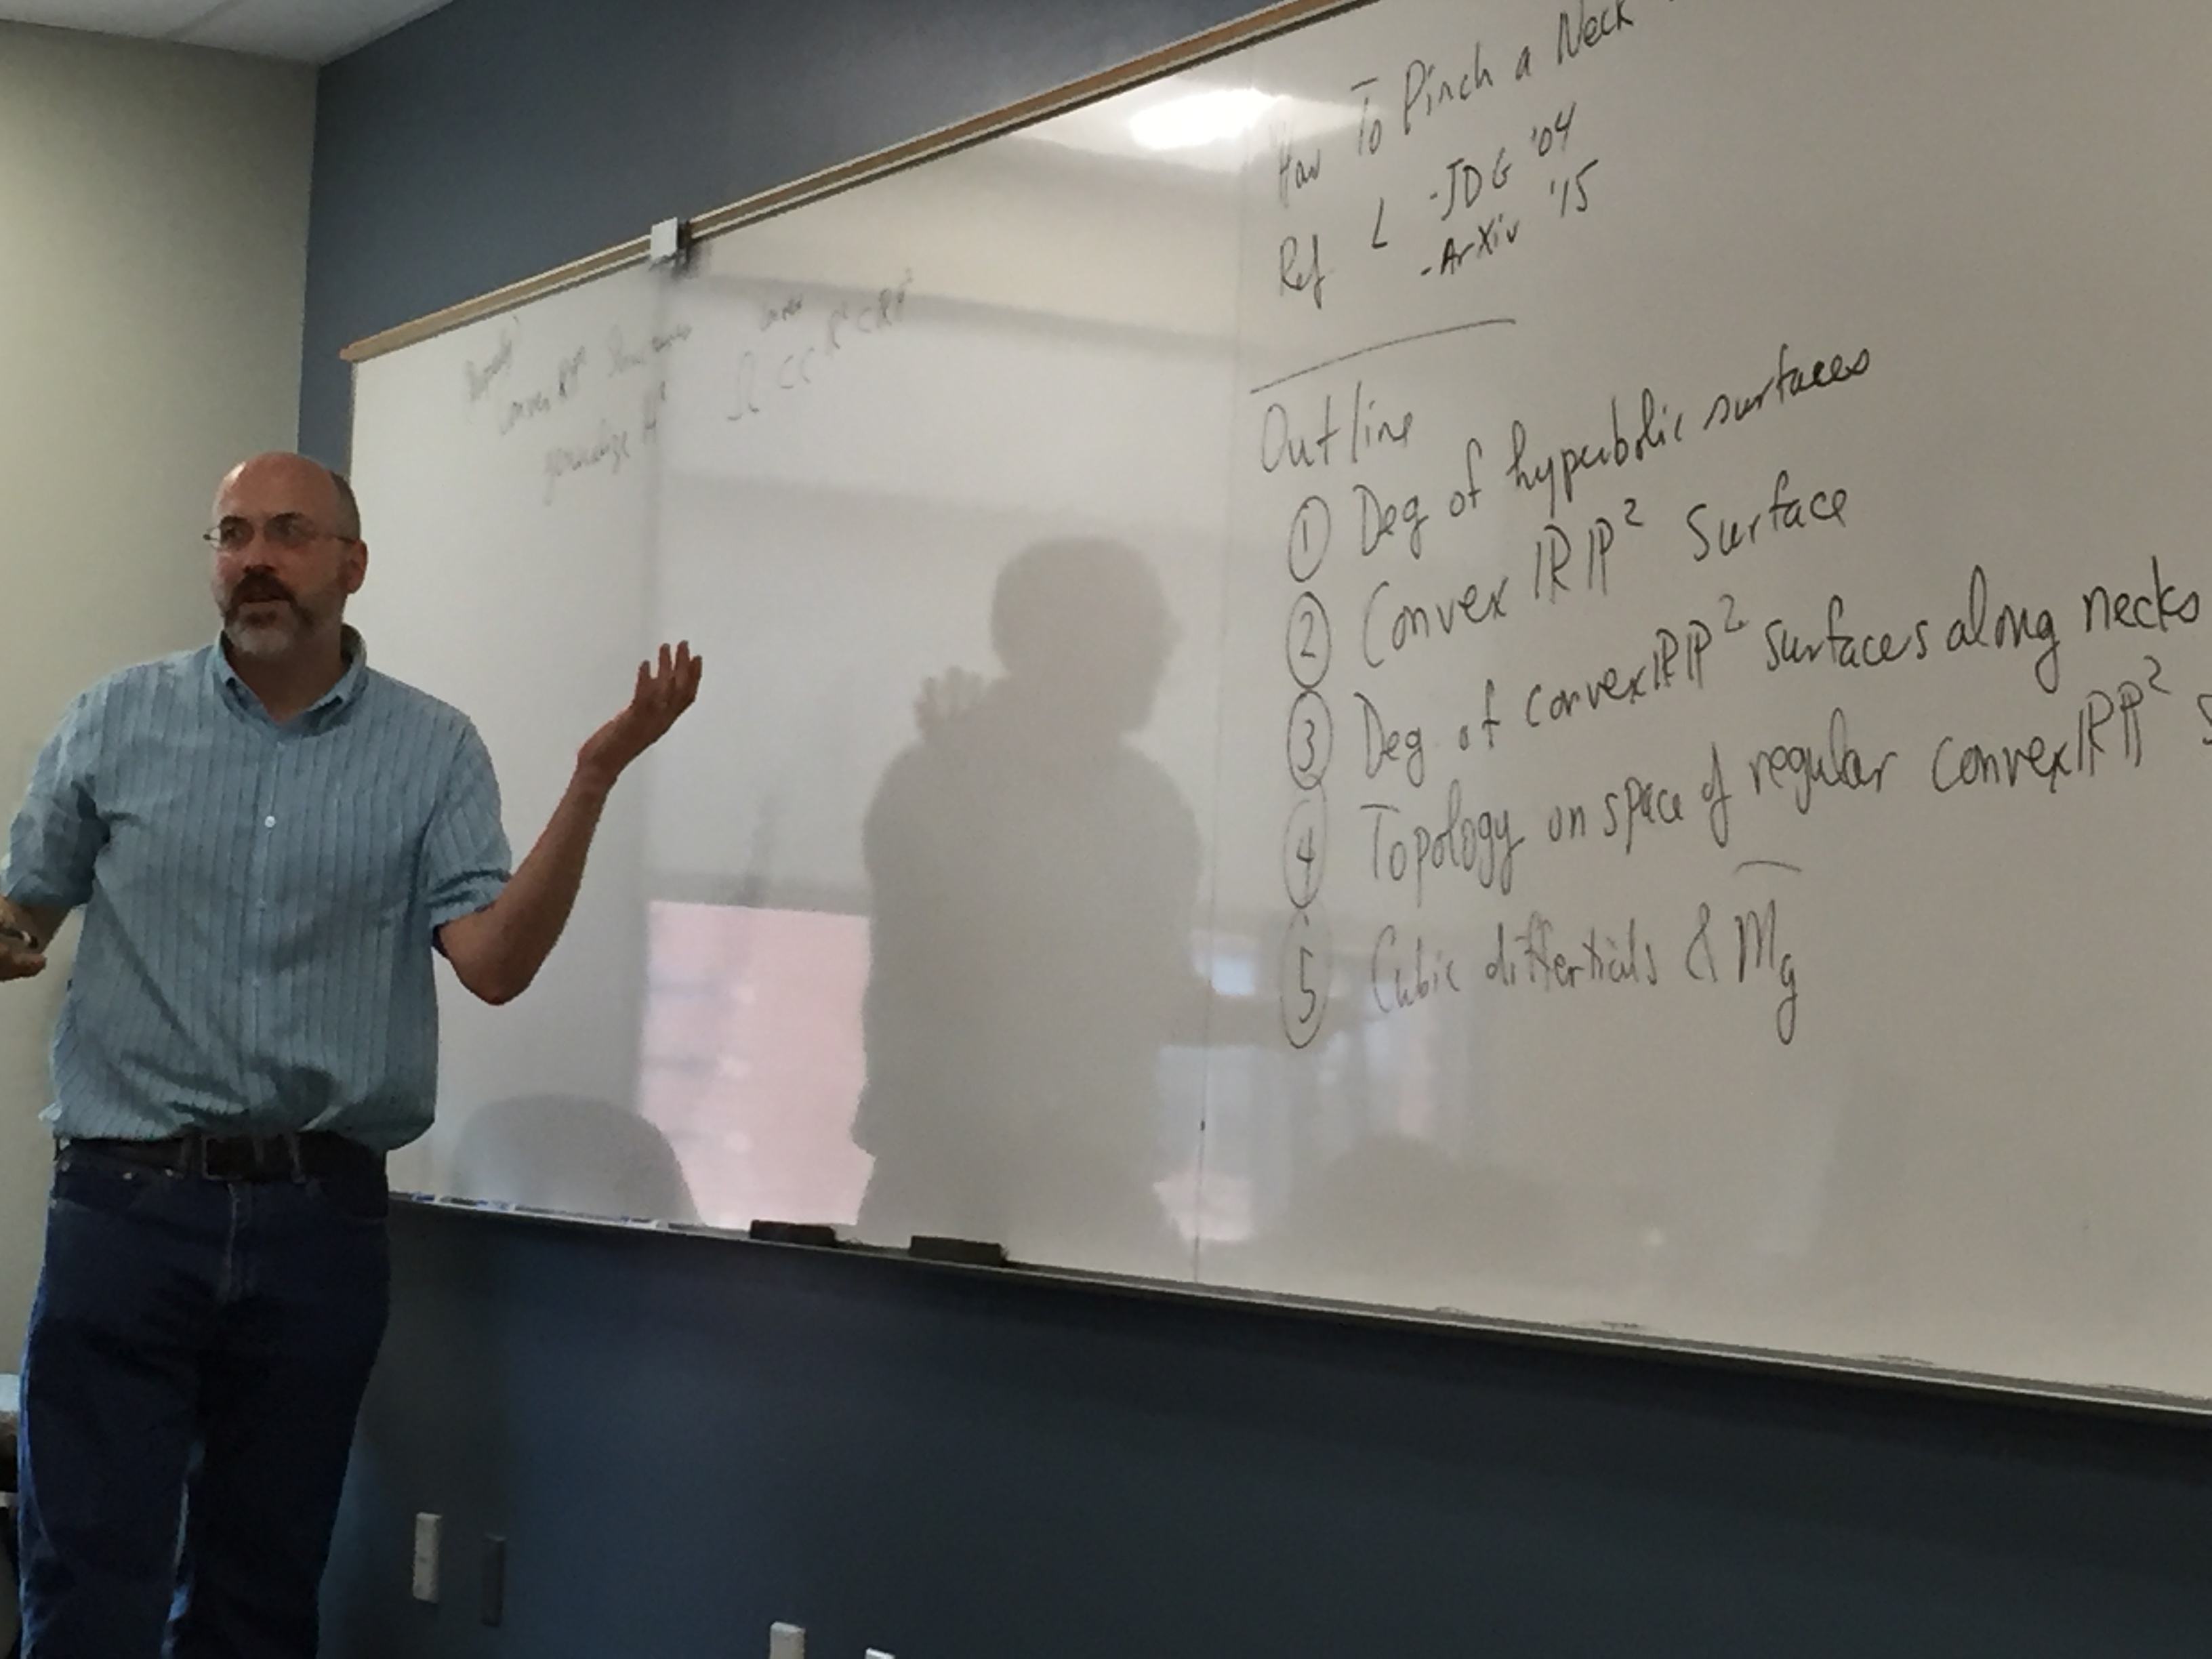 How To Pinch a Neck
Ref L - JDG '04
- ArXiv '15
Outline
① Deg of hyperbolic surfaces
② Convex ℝℙ² Surface
③ Deg of convex ℝℙ² surfaces along necks
④ Topology on space of regular convex ℝℙ² S
⑤ Cubic differtials & M̅g
Convex RP² Structures
generalize H²
Ω ⊂⊂ R² ⊂ RP²